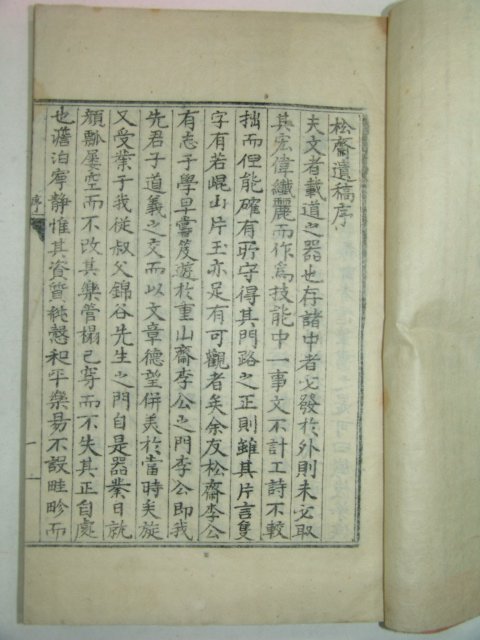 松齋遺稿序
夫文者載道之器也存諸中者必發於外則未必取
其宏偉纖麗而作為技能中一事文不計工詩不較
拙而但能確有所守得其門路之正則雖其片言隻
字有若崐山片玉亦足有可觀者矣余友松齋李公
有志于學早嘗笈遊於重山齋李公之門李公即我
先君子道義之交而以文章德望併美於當時矣旋
又受業于我從叔父錦谷先生之門自是器業日就
顔瓢屢空而不改其樂管榻已穿而不失其正自處
也澹泊寧靜惟其資質純慤和平樂易不設畦畛而
序
一